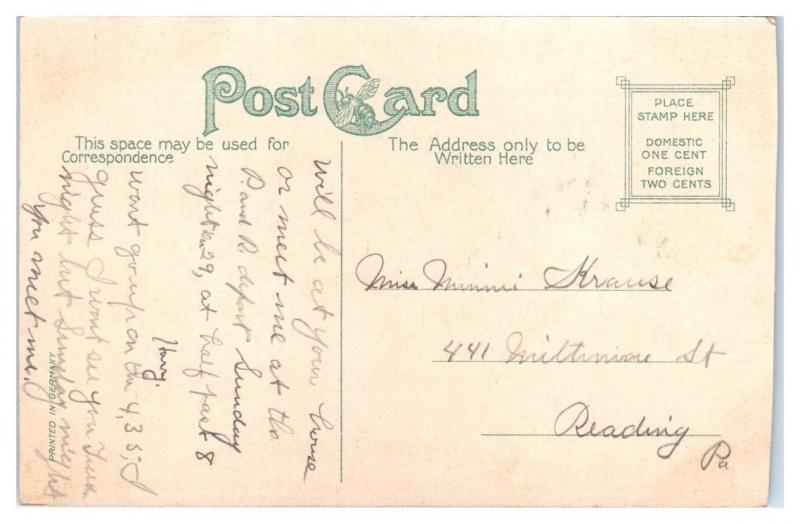 Post Card
This space may be used for
Correspondence
The Address only to be
Written Here
PLACE
STAMP HERE
DOMESTIC
ONE CENT
FOREIGN
TWO CENTS
Will be at your house
or meet me at the
P. and R. depot Sunday
night 29, at half past 8
Harry.
wont go up on the 4,35, I
guess I wont see you
night but Sunday night
you meet me,
PRINTED IN GERMANY
Miss Minnie Krause
441 Miltimore St
Reading
Pa